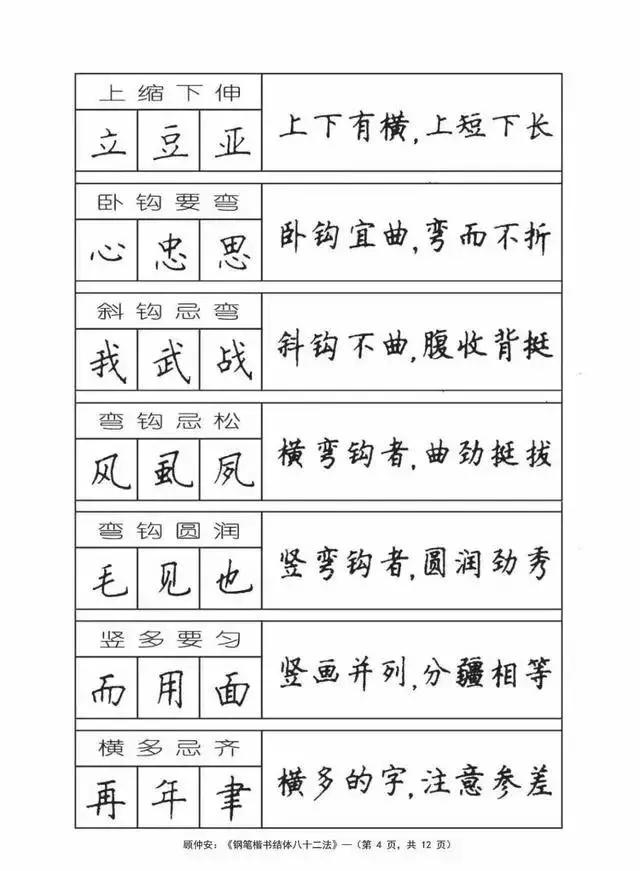 上缩下伸
立豆亚
上下有横,上短下长
卧钩要弯
心忠思
卧钩宜曲,弯而不折
斜钩忌弯
我武战
斜钩不曲,腹收背挺
弯钩忌松
风虱夙
横弯钩者,曲劲挺拔
弯钩圆润
毛见也
竖弯钩者,圆润劲秀
竖多要匀
而用面
竖画并列,分疆相等
横多忌齐
再年聿
横多的字,注意参差
顾仲安:《钢笔楷书结体八十二法》—(第 4 页,共 12 页)